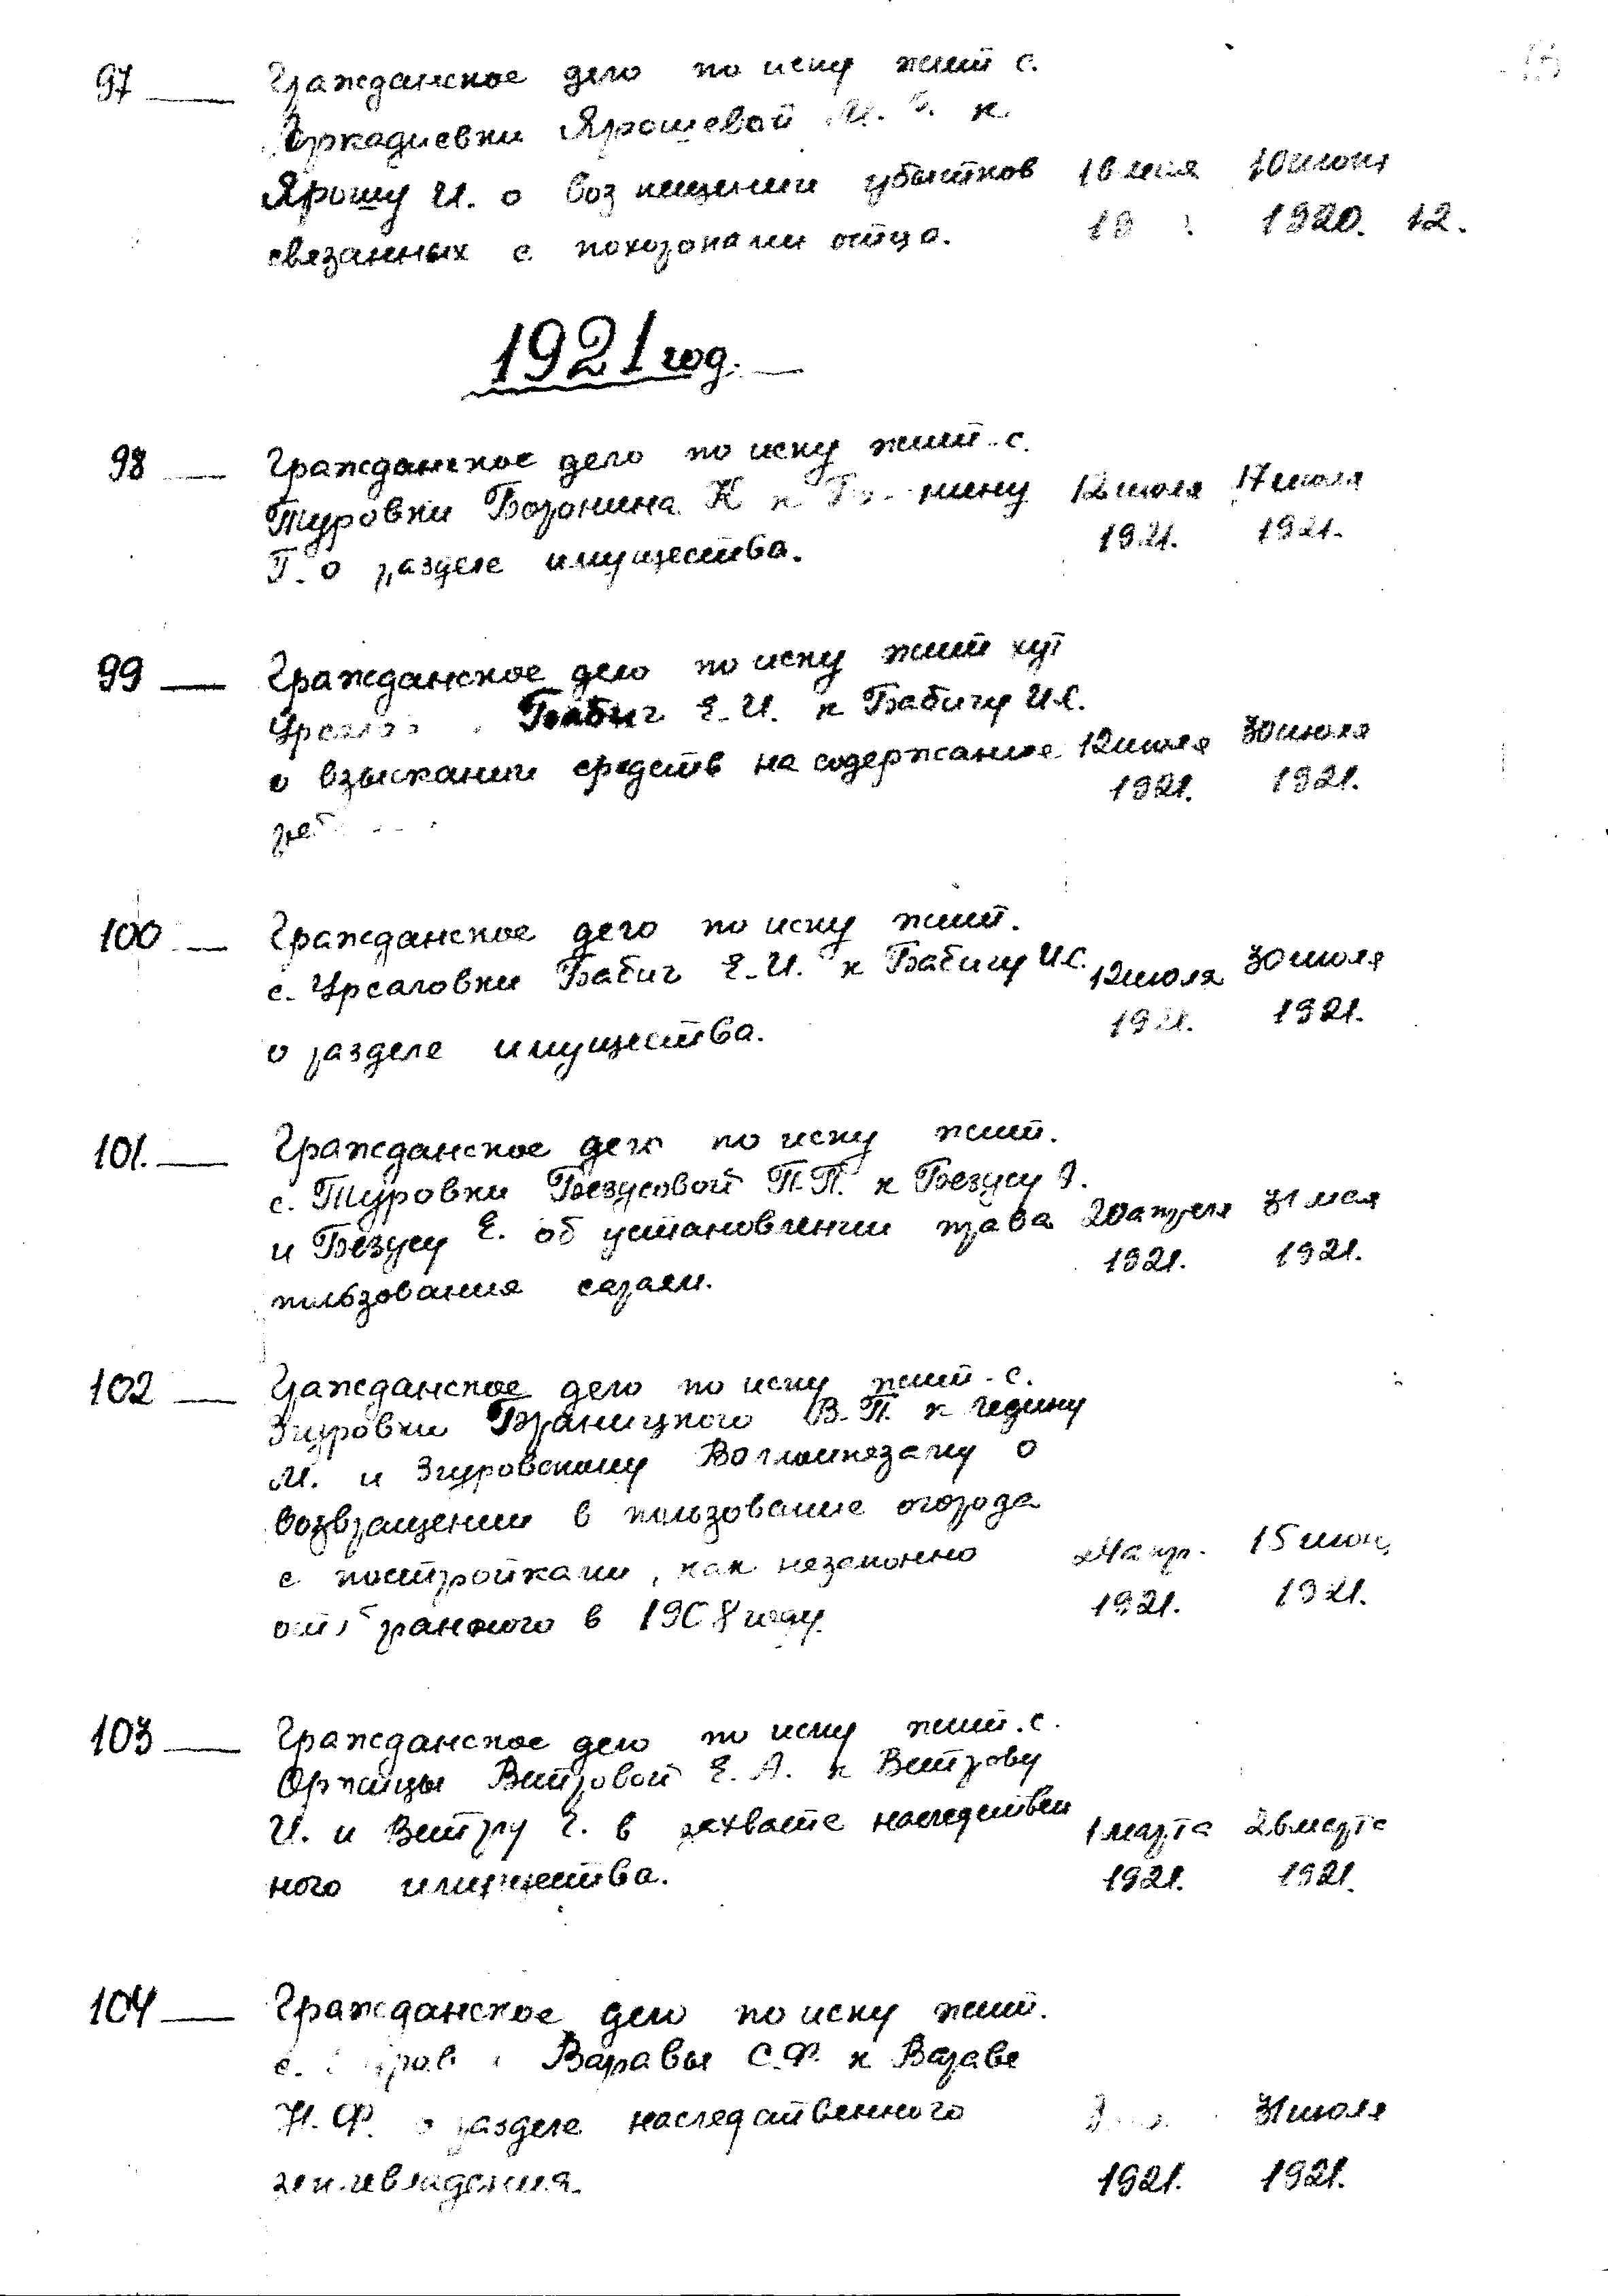 97 — Гражданское дело по иску жит с.
Аркадиевки Ярошевой М. к
Ярошу И. о возмещении убытков 10 июня
связанных с похоронами отца. 1920. 12.
1921 год. —
98 — Гражданское дело по иску жит. с.
Туровки Боронина К к нину 12 июля 17 июля
Г. о разделе имущества. 1921. 1921.
99 — Гражданское дело по иску жит хут
Бабич Е.И. к Бабичу И.С.
о взыскании средств на содержание 12 июля 30 июля
1921. 1921.
100 — Гражданское дело по иску жит.
с. Урсаловки Бабич Е.И. к Бабичу И.С.
12 июля 30 июля
о разделе имущества. 1921. 1921.
101. — Гражданское дело по иску жит.
с. Туровки Безусовой П.П. к Безусу
и Безусу Е. об установлении права 20 апреля 31 мая
пользования сараем. 1921. 1921.
102 — Гражданское дело по иску жит. с.
Згуровки Браницкого В.П. к Гедину
М. и Згуровскому Волземхозу о
возвращении в пользование огорода
с постройками, как незаконно 24 апр. 15 июн,
отобранного в 1908 году. 1921. 1921.
103 — Гражданское дело по иску жит. с.
Оржицы Витровой Е. А. к Витрову
И. и Витру Г. в захвате наследствен 1 марта 26 марта
ного имущества. 1921. 1921.
104 — Гражданское дело по иску жит.
с. Варавы С.Ф. кВараве
Н. Ф. о разделе наследственного 31 июля
землевладения. 1921. 1921.